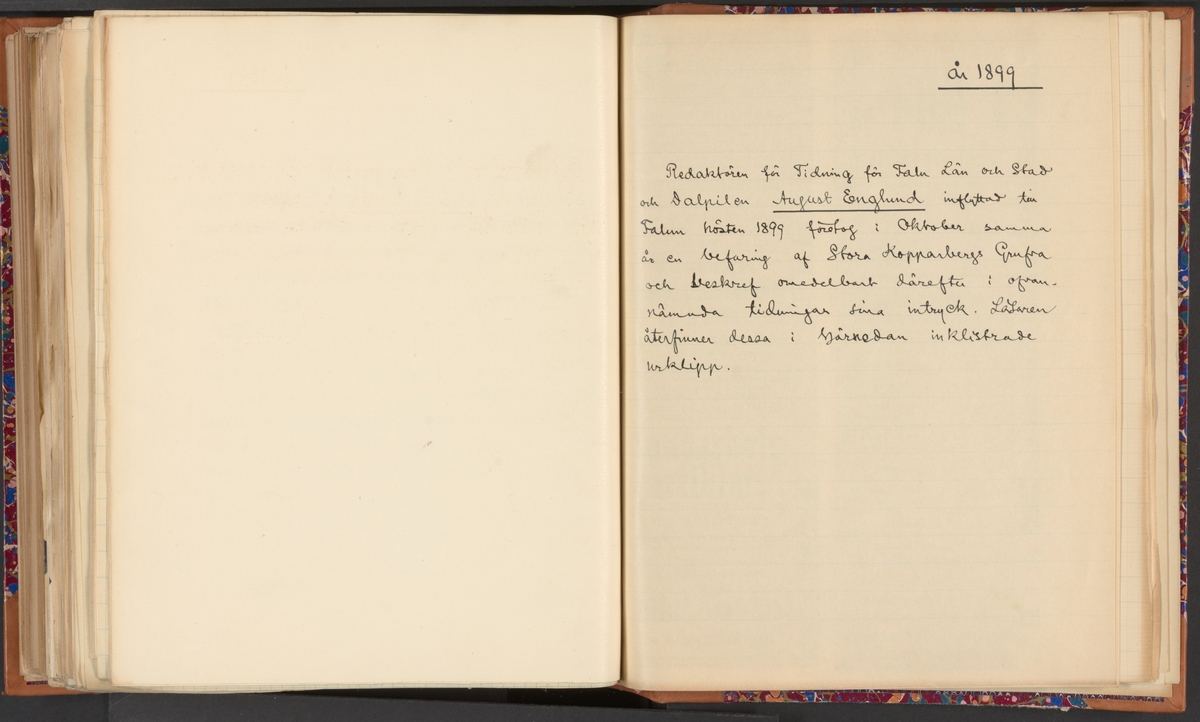 år 1899
Redaktören för Tidning för Falu Län och Stad
och Dalpilen August Englund inflyttad till
Falun hösten 1899 företog i Oktober samma
år en befaring af Stora Kopparbergs Grufva
och beskref omedelbart därefter i ofvan-
nämnda tidningar sina intryck. Läsaren
återfinner dessa i härnedan inklistrade
urklipp.